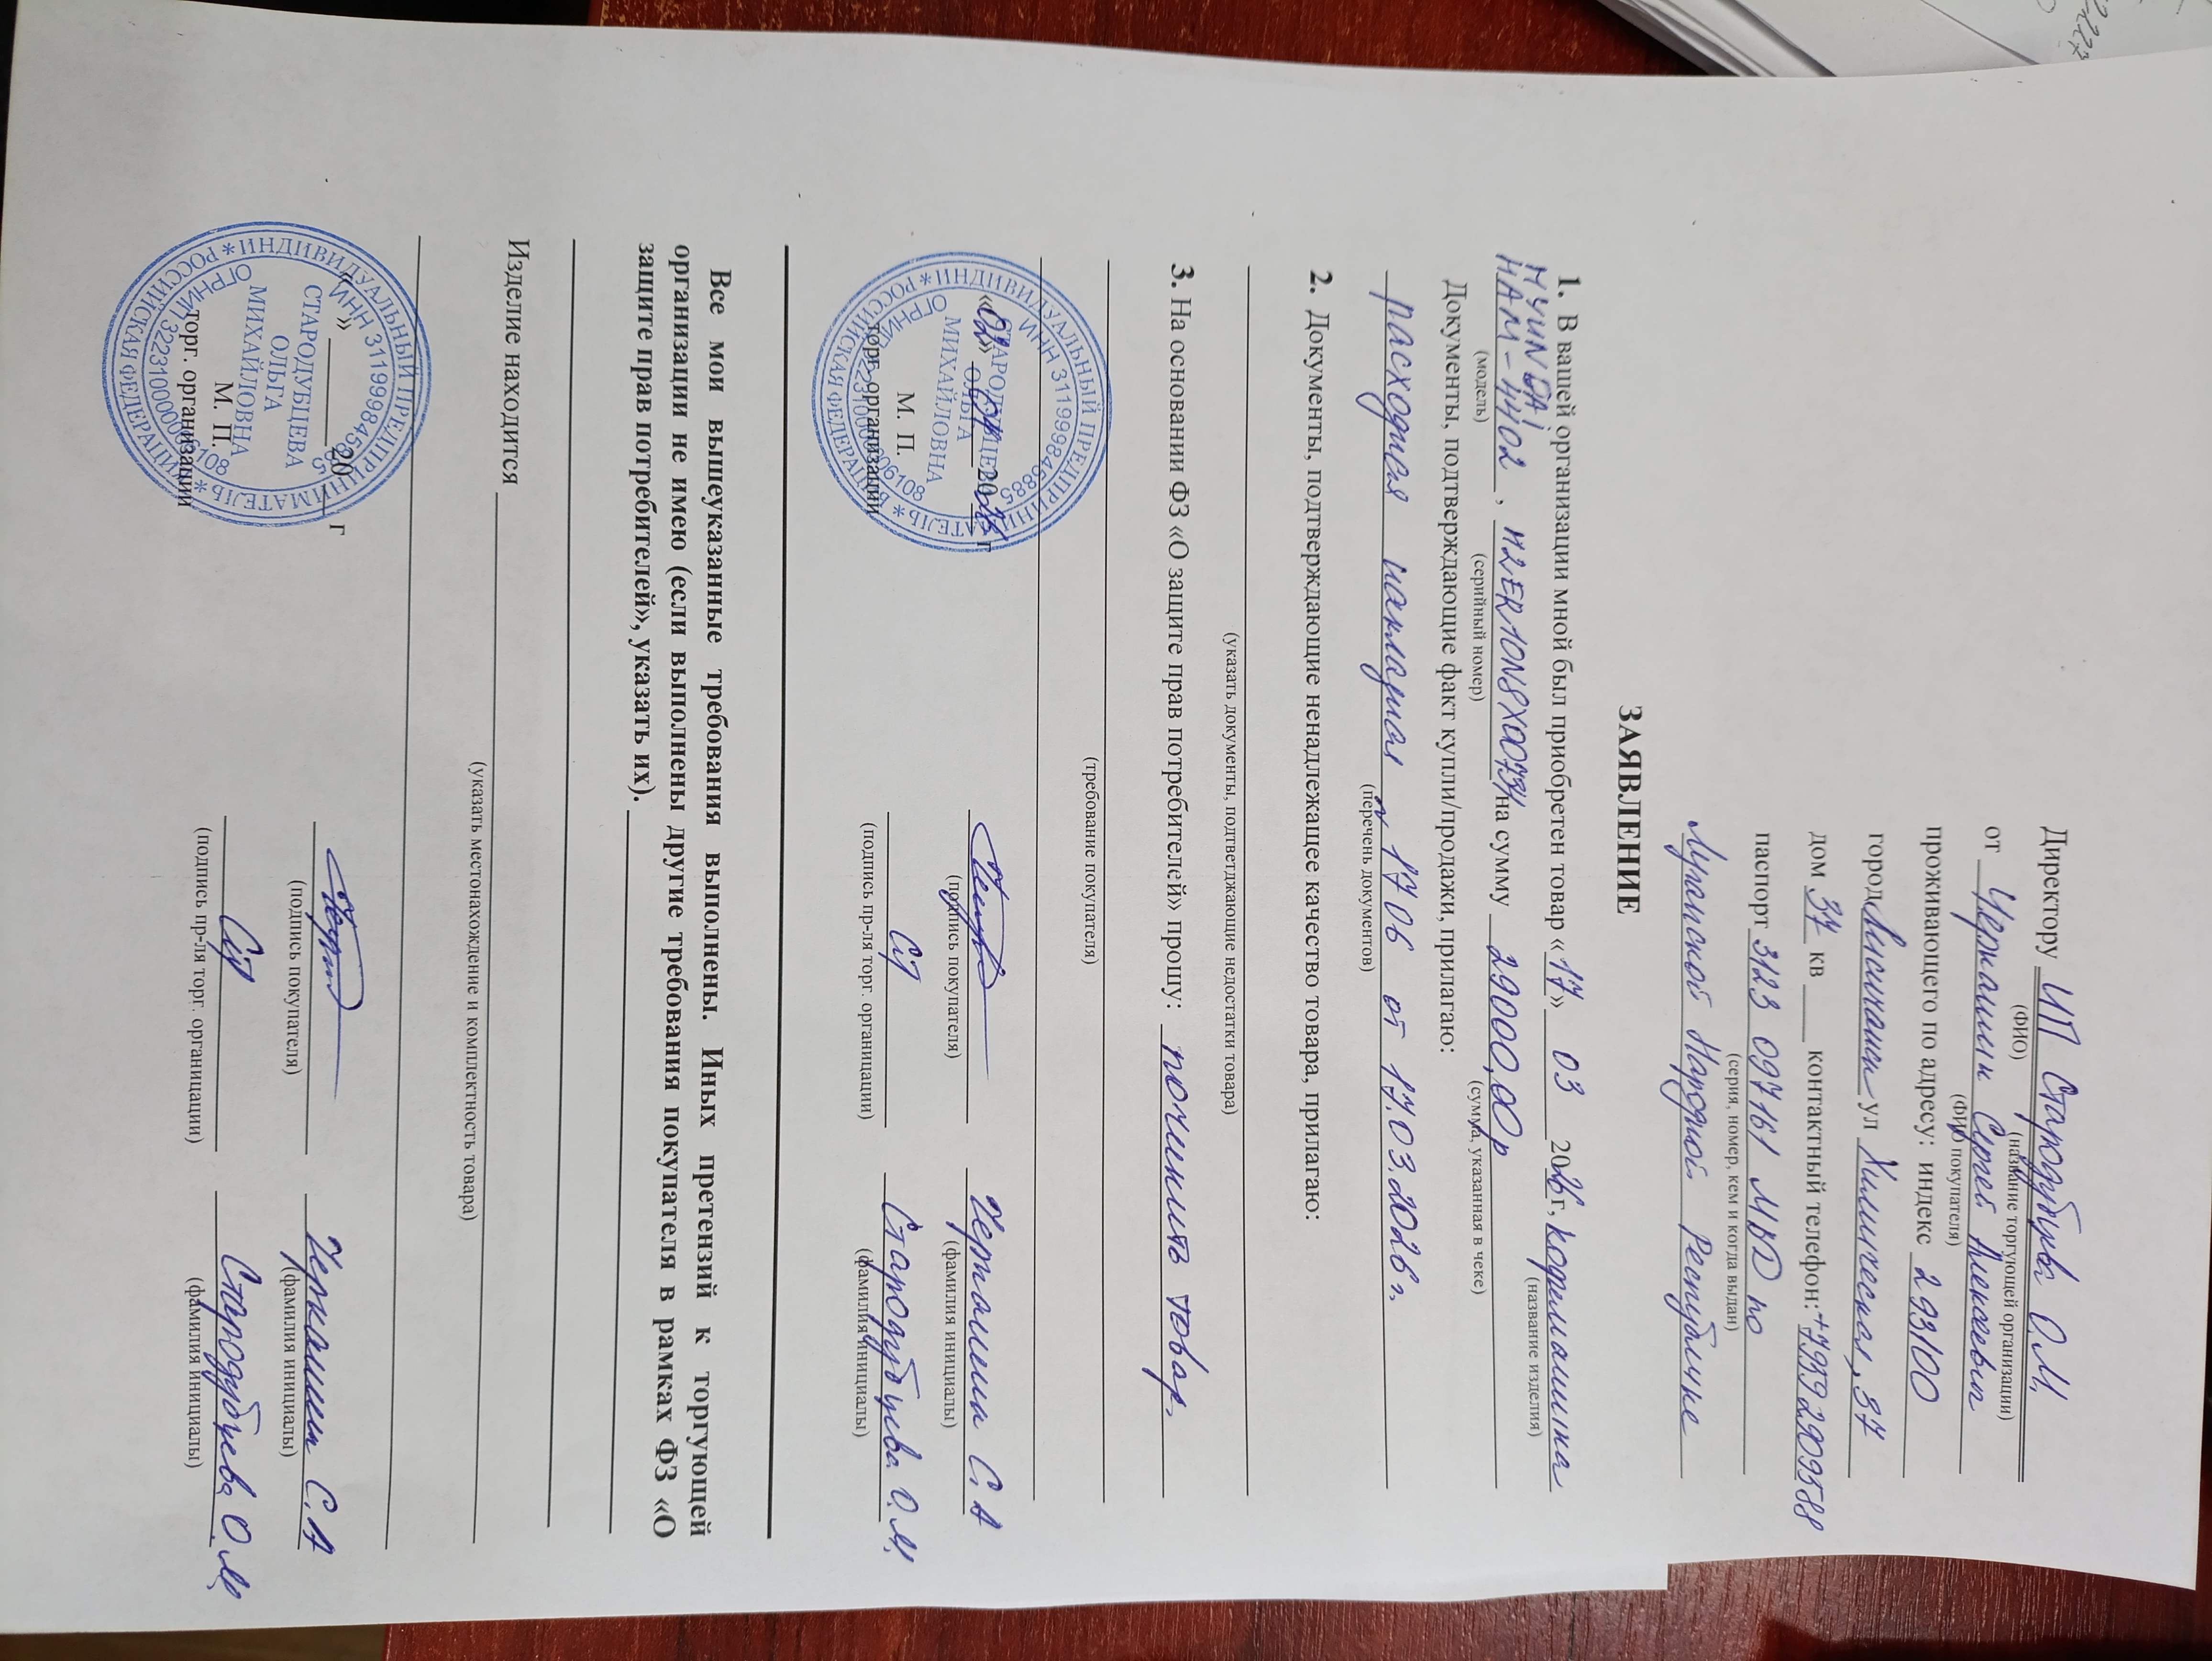 Директору ИП Стародубцева О.М.
(ФИО) (название торгующей организации)
от Черкашин Сергей Алексеевич
(ФИО покупателя)
проживающего по адресу: индекс 293100
город Лисичанск ул Химическая, 37
дом 37 кв контактный телефон: +79592909588
паспорт 3123 097161 МВД по
(серия, номер, кем и когда выдан)
Луганской Народной Республике
ЗАЯВЛЕНИЕ
1. В вашей организации мной был приобретен товар «17» 03 2026 г, кофемашина
(название изделия)
HYUNDAI
HAM-4402, на сумму 29000,00р
(модель) (серийный номер) (сумма, указанная в чеке)
Документы, подтверждающие факт купли/продажи, прилагаю:
расходная накладная № 1706 от 17.03.2026г.
(перечень документов)
2. Документы, подтверждающие ненадлежащее качество товара, прилагаю:
(указать документы, подтверждающие недостатки товара)
3. На основании ФЗ «О защите прав потребителей» прошу: починить товар.
(требование покупателя)
«02» 20 26 г
Черкашин С.А
(подпись покупателя) (фамилия инициалы)
М. П.
торг. организации
Стародубцева О.М.
(подпись пр-ля торг. органицации) (фамилия инициалы)
ИНДИВИДУАЛЬНЫЙ ПРЕДПРИНИМАТЕЛЬ * РОССИЙСКАЯ ФЕДЕРАЦИЯ *
ИНН 311999845885
ОГРНИП 322310000006108
СТАРОДУБЦЕВА
ОЛЬГА
МИХАЙЛОВНА
Все мои вышеуказанные требования выполнены. Иных претензий к торгующей
организации не имею (если выполнены другие требования покупателя в рамках ФЗ «О
защите прав потребителей», указать их).
Изделие находится
(указать местонахождение и комплектность товара)
« » 20 г
Черкашин С.А
(подпись покупателя) (фамилия инициалы)
М. П.
торг. организации
Стародубцева О.М.
(подпись пр-ля торг. органицации) (фамилия инициалы)
ИНДИВИДУАЛЬНЫЙ ПРЕДПРИНИМАТЕЛЬ * РОССИЙСКАЯ ФЕДЕРАЦИЯ *
ИНН 311999845885
ОГРНИП 322310000006108
СТАРОДУБЦЕВА
ОЛЬГА
МИХАЙЛОВНА